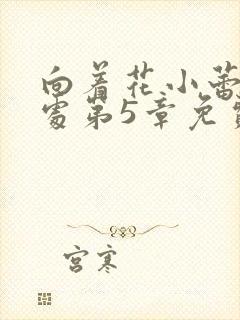 向着花小蕾深
处第5章免费
宫寒